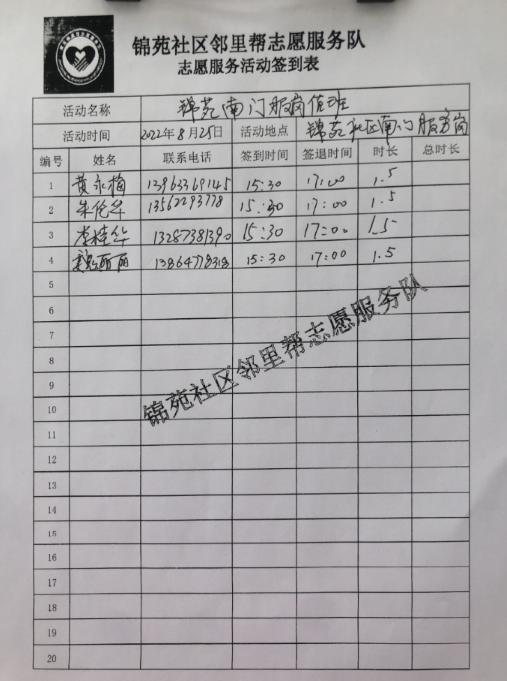 锦苑社区邻里帮志愿服务队
志愿服务活动签到表
活动名称 锦苑南门服岗值班
活动时间 2022年8月25日 活动地点 锦苑社区南门服务岗
编号 姓名 联系电话 签到时间 签退时间 时长 总时长
1 黄永梅 13963369145 15:30 17:00 1.5
2 朱伦华 13562293778 15:30 17:00 1.5
3 李桂华 13287381390 15:30 17:00 1.5
4 丽丽 13864778318 15:30 17:00 1.5
5
6
7
8
锦苑社区邻里帮志愿服务队
9
10
11
12
13
14
15
16
17
18
19
20